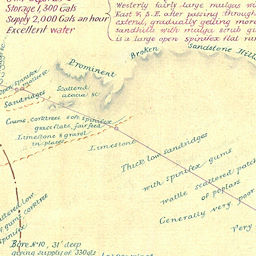 Storage 1,300 Gals
Supply 2,000 Gals an hour
Excellent water
Westerly fairly large mulga
East & S.E. after passing through
extend, gradually getting more
sandhills with mulga scrub
is a large open spinifex flat
Prominent Broken Sandstone
open spinifex
Sandridges
Scattered
acacia &c.
Gums, corktree soft spinifex
grass flats, fair feed
Limestone & gravel
in places
Limestone
Thick low sandridges
with spinifex gums
wattle scattered patch
of poplars
Generally very poor
Very
low
gum corktree
spinifex
Bore No 10, 31' deep
giving supply of 330 gls